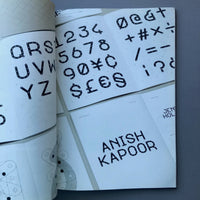 QRS
UVW
YZ
1234
5678
90¥¢
$£€§
Ø@&†
+#×÷
/=–
¡?
ANISH
KAPOOR